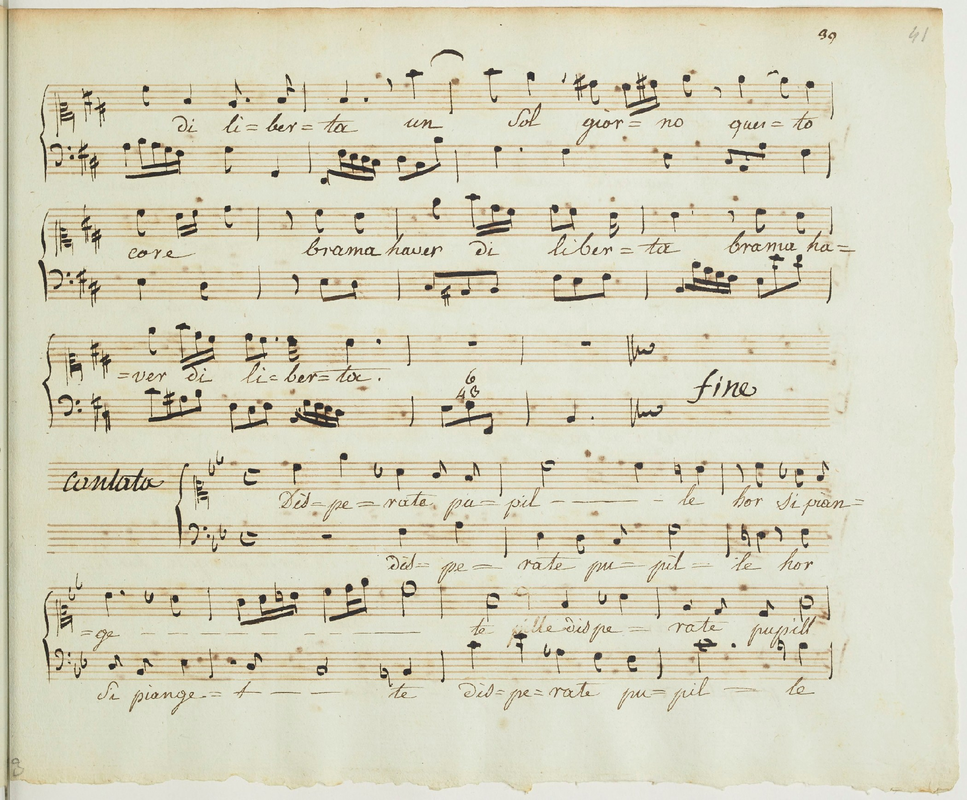 39 41
di li=ber=ta un sol gior=no ques=to
core brama haver di liber=ta brama ha=
=ver di li=ber=ta.
6
43
fine
cantata
Dis=pe=rate pu=pil - - - le hor si pian=
dis=pe=rate pu=pil=le hor
=ge - - - - - te dispe=rate pupill
si piange=t - - - te dis=pe=rate pu=pil - le